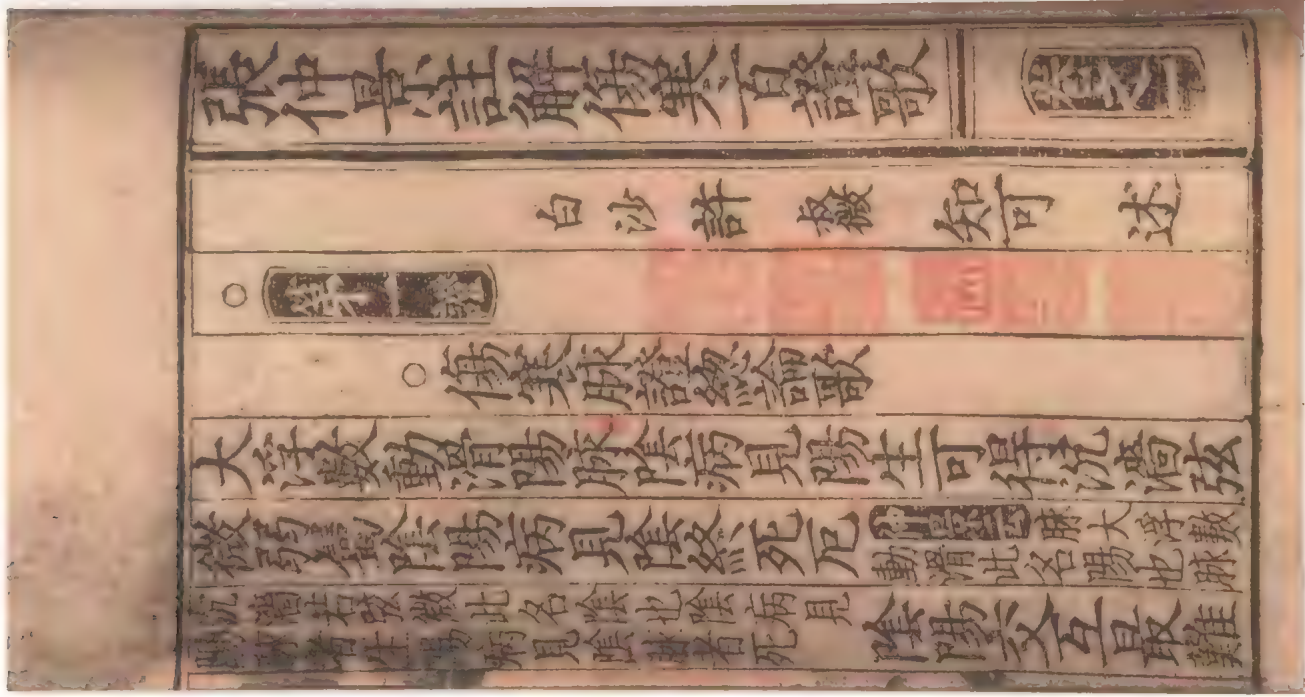 張仲景註解傷寒百證歌 卷之一
白沙許叔微知可述
○第一證
○傷寒脉證總論歌
大浮數動滑陽脉陰病見陽生可得沉濇弦
微弱屬陰陽病見陰終死厄
仲景云脉大浮數
動滑此名陽也脉
沉濇弱弦微此名陰也陰病見
陽脉者生陽病見陰脉者死
陰陽交互最難